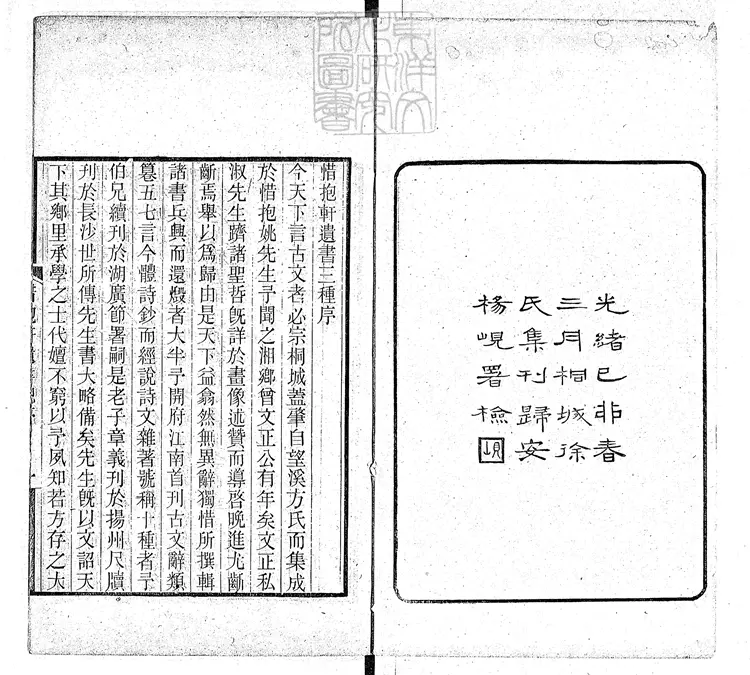 東洋文化研究所圖書
光緒己卯春
三月桐城徐
氏集刊歸安
楊峴署檢
惜抱軒遺書三種序
今天下言古文者必宗桐城蓋肇自望溪方氏而集成
於惜抱姚先生予聞之湘鄉曾文正公有年矣文正私
淑先生躋諸聖哲旣詳於畫像述贊而導啓晚進尤齗
齗焉舉以爲歸由是天下益翕然無異辭獨惜所撰輯
諸書兵興而還燬者大半予開府江南首刊古文辭類
篹五七言今體詩鈔而經說詩文雜著號稱十種者予
伯兄續刊於湖廣節署嗣是老子章義刊於揚州尺牘
刊於長沙世所傳先生書大略備矣先生旣以文詔天
下其鄉里承學之士代嬗不窮以予夙知若方存之大